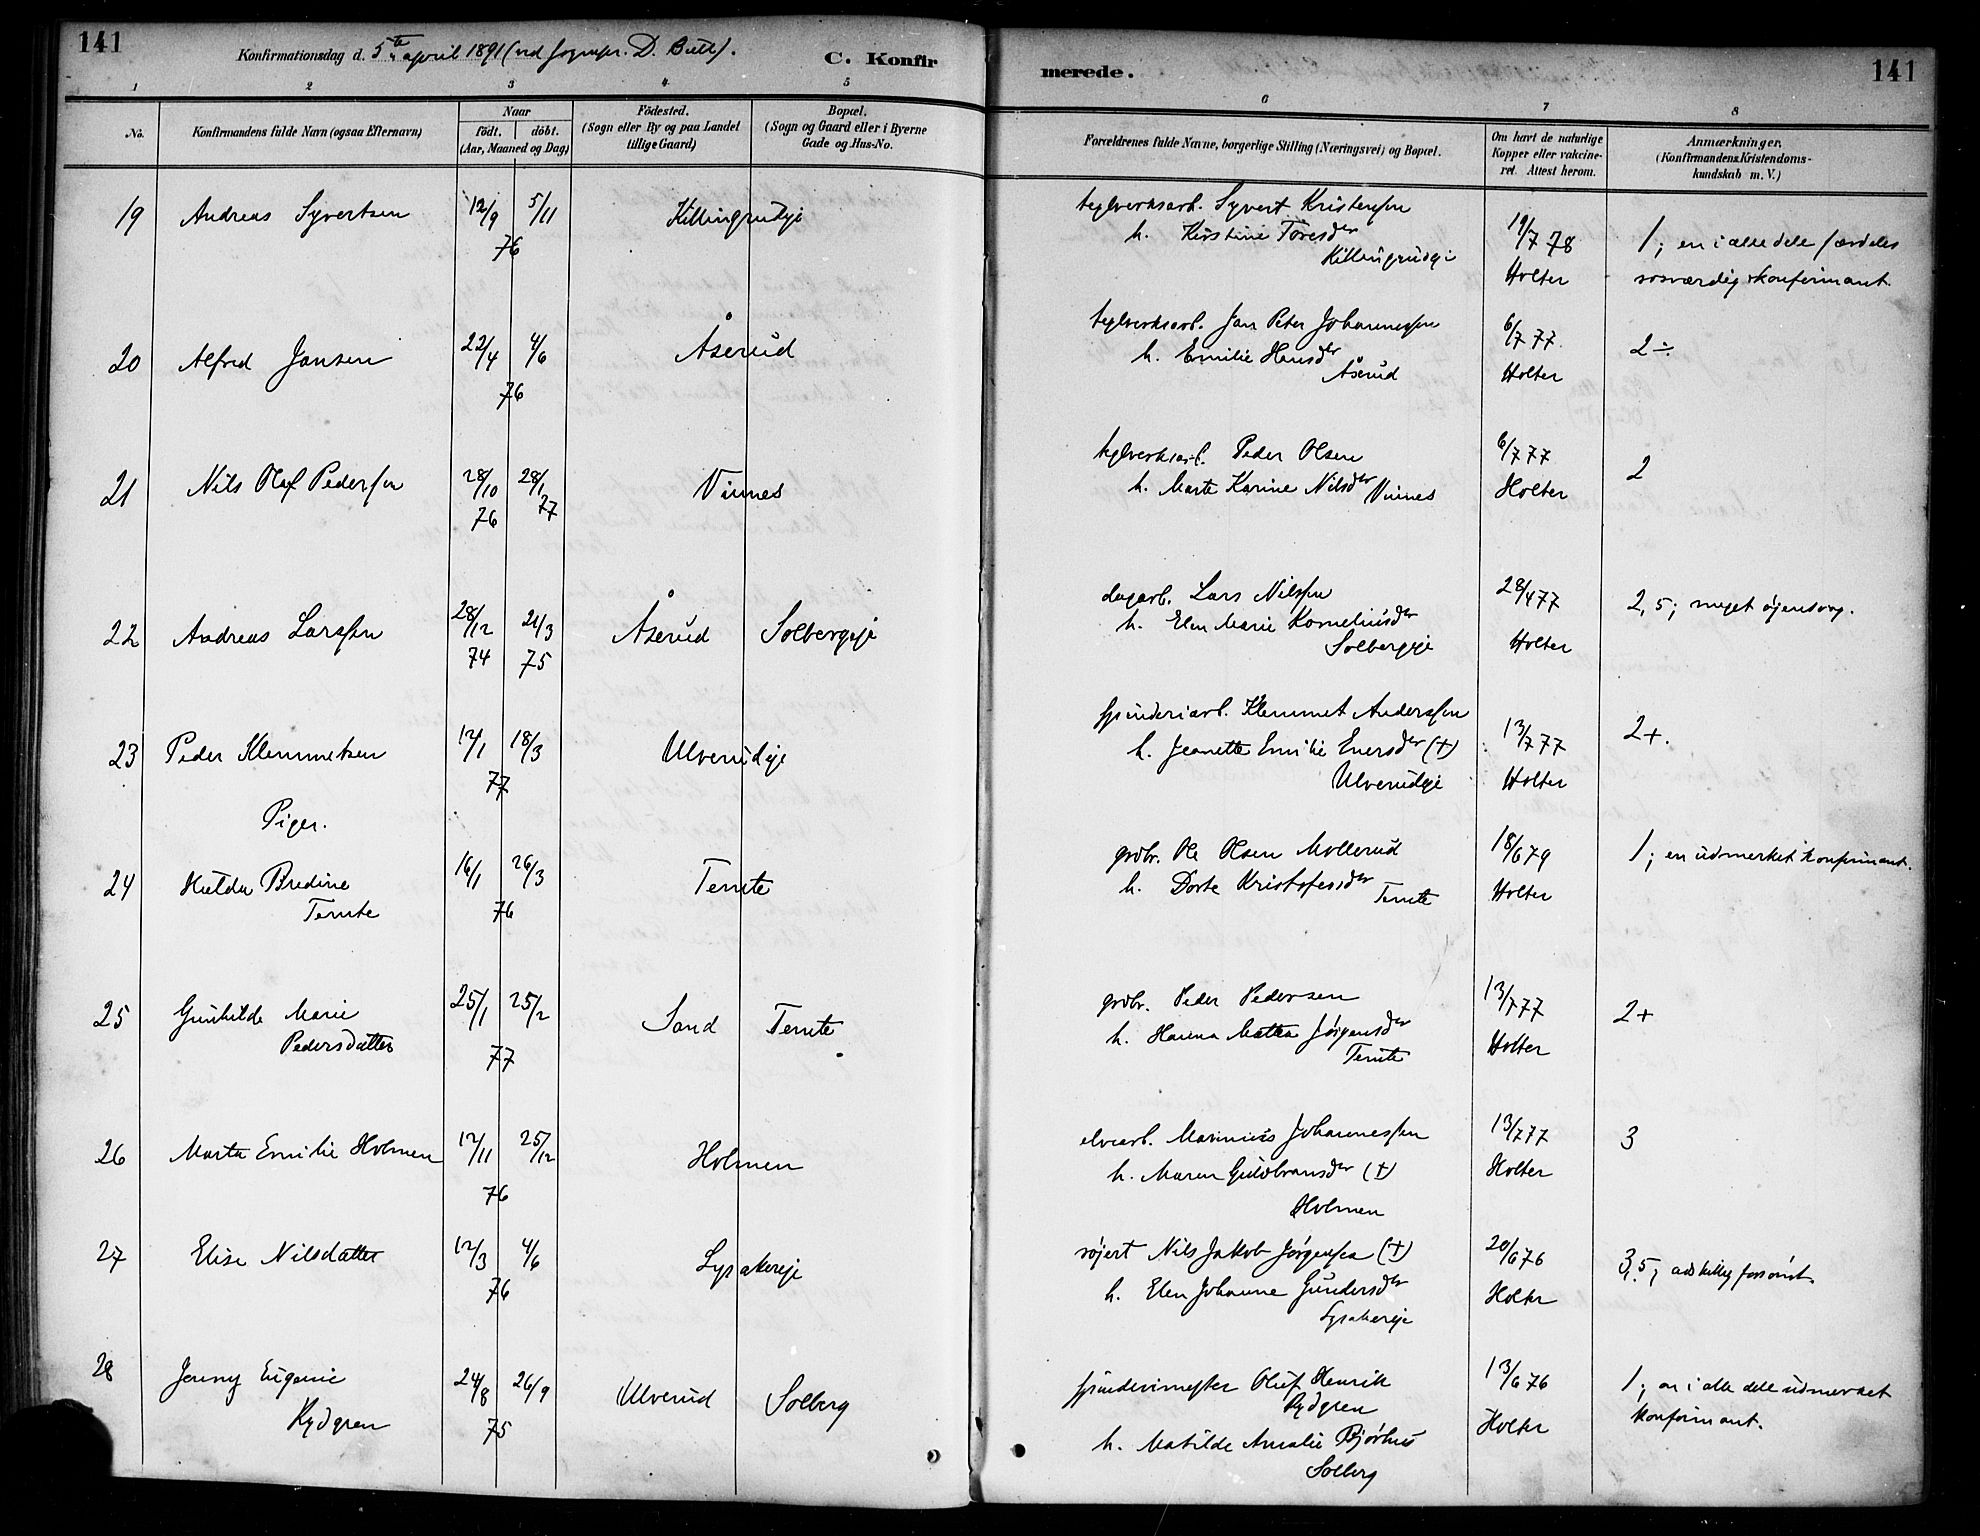 141
Konfirmationsdag d. 5te april 1891 (ved sognepr. D. Bull).
C. Konfirmerede.
141
1 2 3 4 5 6 7 8
No.
Konfirmandens fulde Navn (ogsaa Efternavn)
Naar
födt. döbt.
(Aar, Maaned og Dag)
Födested.
(Sogn eller By og paa Landet
tillige Gaard)
Bopæl.
(Sogn og Gaard eller i Byerne
Gade og Hus-No.
Forældrenes fulde Navne, borgerlige Stilling (Næringsvei) og Bopæl.
Om havt de naturlige
Kopper eller vakcine-
ret. Attest herom.
Anmærkninger.
(Konfirmandens Kristendoms-
kundskab m. V.)
19 Andreas Syvertsen 12/9 5/11 76 Killingrudeje
teglverksarb. Syvert Kristensen
h. Kirstine Toresdr
Killingrudeje
19/7 78 Holter
1; en i alle dele særdeles
rosværdig konfirmant.
20 Alfred Jansen 22/4 4/6 76 Åserud
teglverksarb. Jan Peter Johannessen
h. Emilie Hansdr
Åserud
6/7 77. Holter
2÷
21 Nils Olaf Pedersen 28/10 76 28/1 77 Vinnes
teglverksarb. Peder Olsen
h. Marte Karine Nilsdr Vinnes
6/7 77 Holter
2
22 Andreas Larssen 28/12 74 21/3 75 Åserud Solbergeje
dagarb. Lars Nilssen
h. Elen Marie Korneliusdr
Solbergeje
28/4 77 Holter
2,5; meget øiensvag.
23 Peder Klemmetsen 12/1 18/3 77 Ulverudeje
spinderiarb. Klemmet Anderssen
h. Jeanette Emilie Enersdr (+)
Ulverudeje
13/7 77 Holter
2+.
Piger.
24 Hulda Bredine
Temte
16/1 26/3 76 Temte
grdbr. Ole Olsen Mollerud
h. Dorte Kristofersdr
Temte
18/6 79 Holter
1; en udmerket konfirmant.
25 Gunhilde Marie
Pedersdatter
25/1 25/2 77 Sand Temte
grdbr. Peder Pedersen
h. Hanna Mattea Jørgensdr
Temte
13/7 77 Holter
2+
26 Marta Emilie Holmen 12/11 25/12 76 Holmen
elvearb. Marinius Johannessen
h. Maren Guldbransdr (+)
Holmen
13/7 77 Holter
3
27 Elise Nilsdatter 12/3 4/6 76 Lysakereje
røjert Nils Jakob Jørgensen (+)
h. Elen Johanne Gundersdr
Lysakereje
20/6 76 Holter
3,5; adskillig forsømt.
28 Jenny Eugenie
Rydgren
24/8 26/9 75 Ulverud Solberg
spinderimester Oluf Henrik
Rydgren
h. Matilde Amalie Bjørhus
Solberg
13/6 76 Holter
1; en i alle dele udmerket
konfirmant.